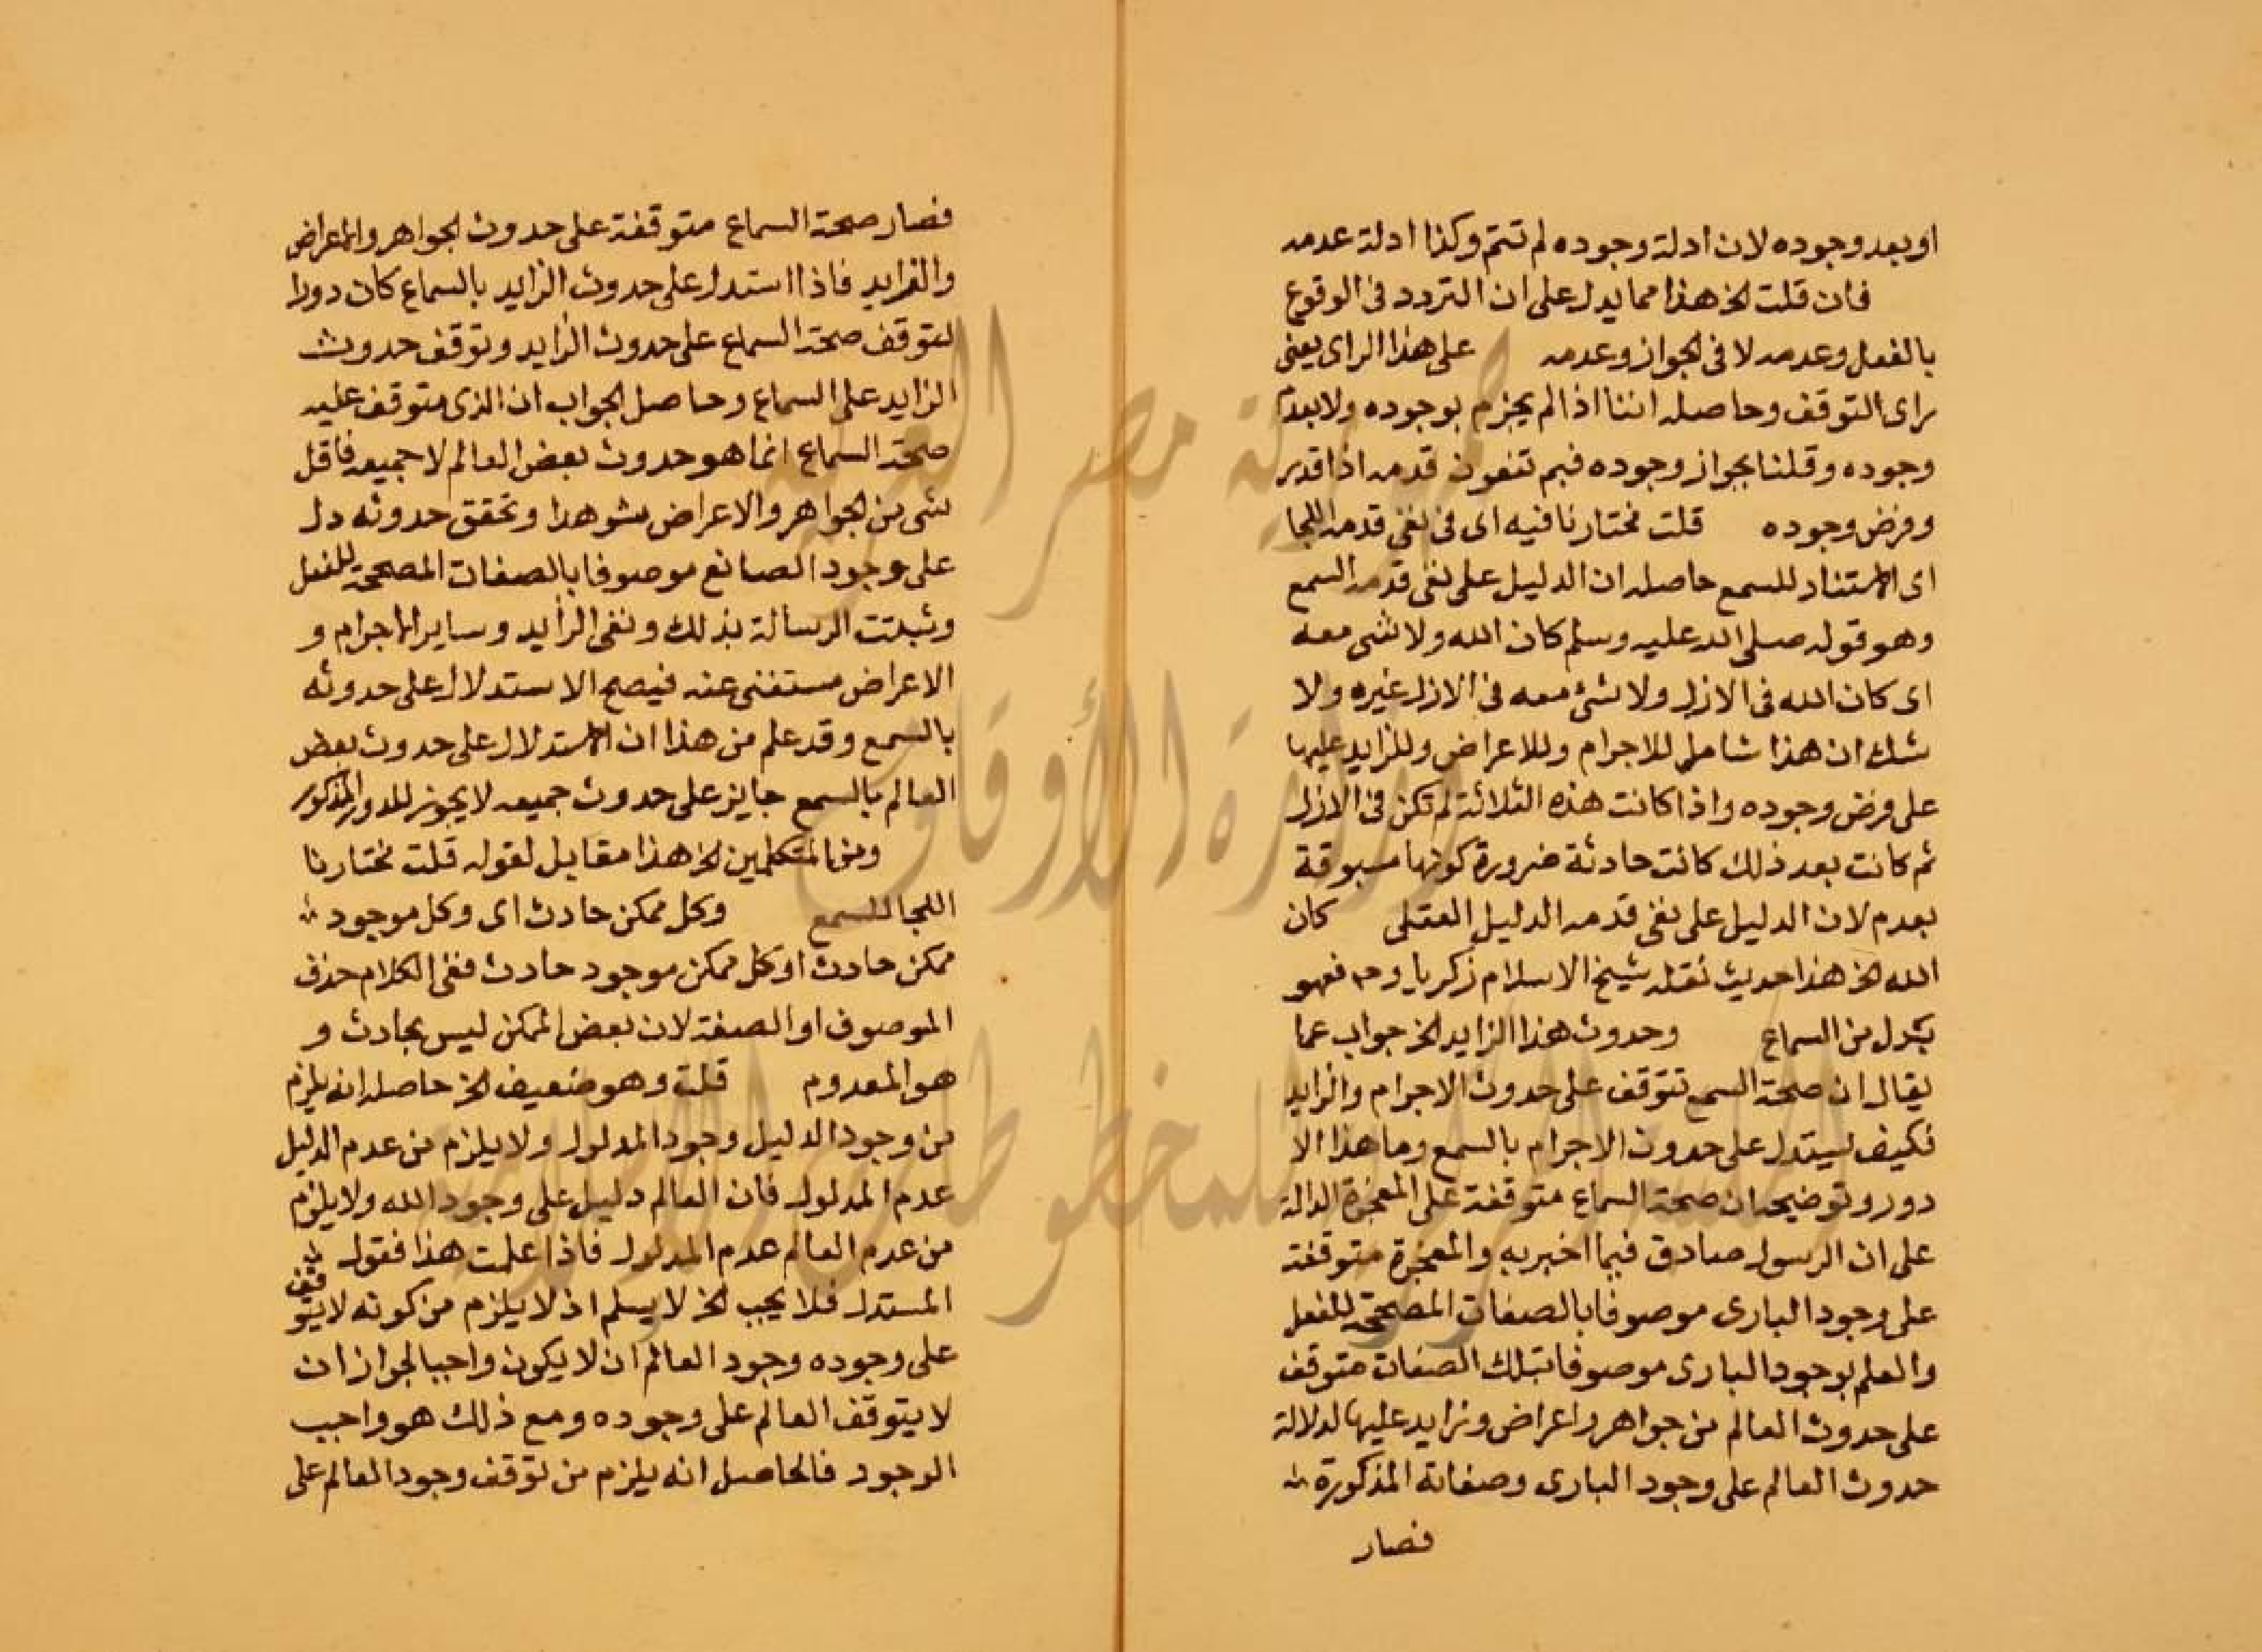 او بعد وجوده لان ادلة وجوده لم تتم وكذا ادلة عدمه
فان قلت الخ هذا مما يدل على ان التردد فى الوقوع
بالفعل وعدمه لا فى الجواز وعدمه على هذا الراى يعنى
راى التوقف وحاصله اننا اذا لم يجزم بوجوده ولا بعدم
وجوده وقلنا بجواز وجوده فبم تنفون قدمه اذا قدر
وفرض وجوده قلت مختارنا فيه اى فى نفى قدمه اللجا
اى الاستناد للسمع حاصله ان الدليل على نفى قدمه السمع
وهو قوله صلى الله عليه وسلم كان الله ولا شى معه
اى كان الله فى الازل ولا شئ معه فى الازل غيره ولا
شك ان هذا شامل للاجرام وللاعراض وللزايد عليها
على فرض وجوده واذا كانت هذه الثلاثة لم تكن فى الازل
ثم كانت بعد ذلك كانت حادثة ضرورة كونها مسبوقة
بعدم لان الدليل على نفى قدمه الدليل العقلى كان
الله الخ هذا حديث نقله شيخ الاسلام زكريا وح فهو
بدل من السماع وحدوث هذا الزايد الخ جواب عما
يقال ان صحة السمع تتوقف على حدوث الاجرام والزايد
فكيف يستدل على حدوث الاجرام بالسمع وما هذا الا
دور وتوضيحه ان صحة السماع متوقفة على المعجزة الدالة
على ان الرسول صادق فيما اخبر به والمعجزة متوقفة
على وجود البارى موصوفا بالصفات المصححة للفعل
والعلم بوجود البارى موصوفا بتلك الصفات متوقف
على حدوث العالم من جواهر واعراض وزايد عليها لدلالة
حدوث العالم على وجود البارى وصفاته المذكورة
فصار
فصار صحة السماع متوقفة على حدوث الجواهر والاعراض
والزايد فاذا استدل على حدوث الزايد بالسماع كان دورا
لتوقف صحة السماع على حدوث الزايد وتوقف حدوث
الزايد على السماع وحاصل الجواب ان الذى متوقف عليه
صحة السماع انما هو حدوث بعض العالم لا جميعه فاقل
شى من الجواهر والاعراض شوهدا وتحقق حدوثه دل
على وجود الصانع موصوفا بالصفات المصححة للفعل
وثبتت الرسالة بذلك ونفى الزايد وساير الاجرام و
الاعراض مستغنى عنه فيصح الاستدلال على حدوثه
بالسمع وقد علم من هذا ان الاستدلال على حدوث بعض
العالم بالسمع جايز على حدوث جميعه لا يجوز للدور المذكور
ومن المتكلمين الخ هذا مقابل لقوله قلت مختارنا
اللجا للسمع وكل ممكن حادث اى وكل موجود
ممكن حادث او كل ممكن موجود حادث ففى الكلام حذف
الموصوف او الصفة لان بعض الممكن ليس بحادث و
هو المعدوم قلت وهو ضعيف الخ حاصله انه يلزم
من وجود الدليل وجود المدلول ولا يلزم من عدم الدليل
عدم المدلول فان العالم دليل على وجود الله ولا يلزم
من عدم العالم عدم المدلول فاذا علمت هذا فقول
المستدل فلا يجب الخ لا يسلم اذ لا يلزم من كونه لا يتوقف
على وجوده وجود العالم ان لا يكون واجبا لجواز ان
لا يتوقف العالم على وجوده ومع ذلك هو واجب
الوجود فالحاصل انه يلزم من توقف وجود العالم على